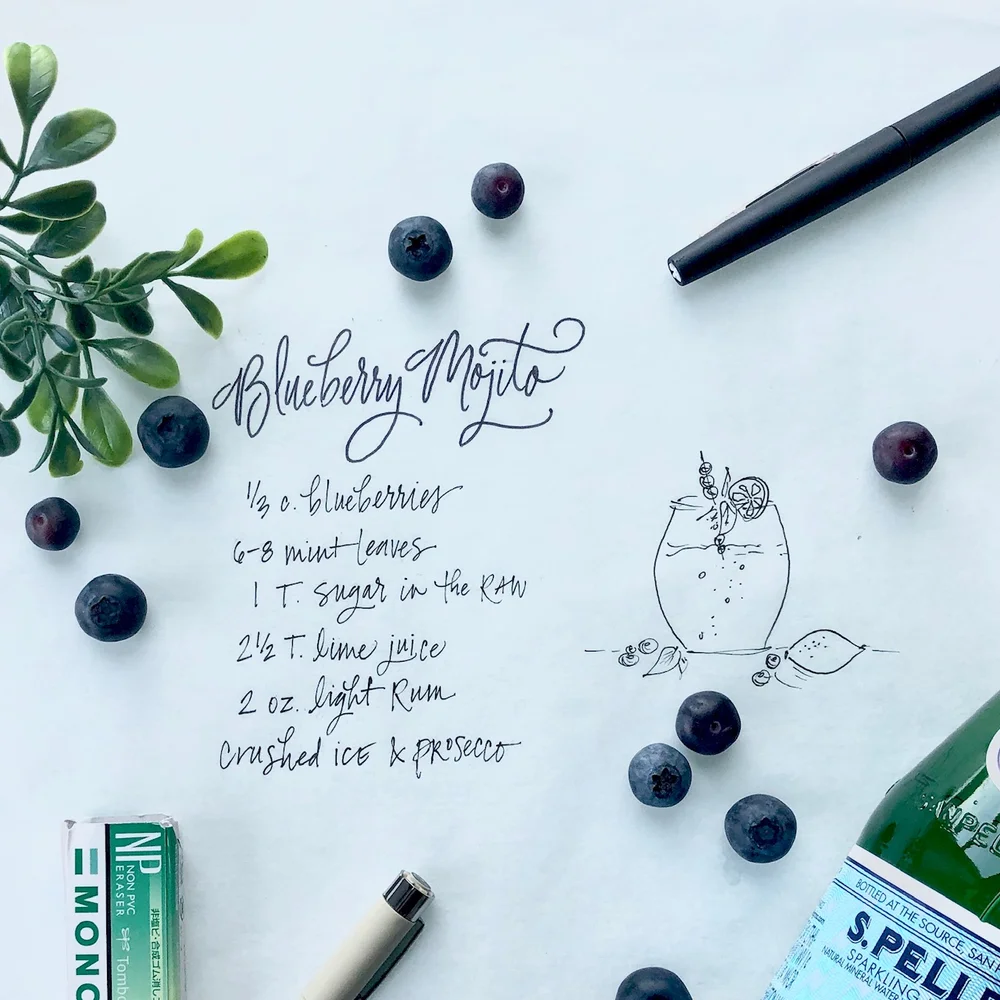 Blueberry Mojito
1/3 c. blueberries
6-8 mint leaves
1 T. sugar in the RAW
2 1/2 T. lime juice
2 oz. light Rum
Crushed ICE & PROSECCO
NP
NON PVC
ERASER
MONO
Tombo
BOTTLED AT THE SOURCE, SAN
S.PELLE
SPARKLING
NATURAL MINERAL WATER